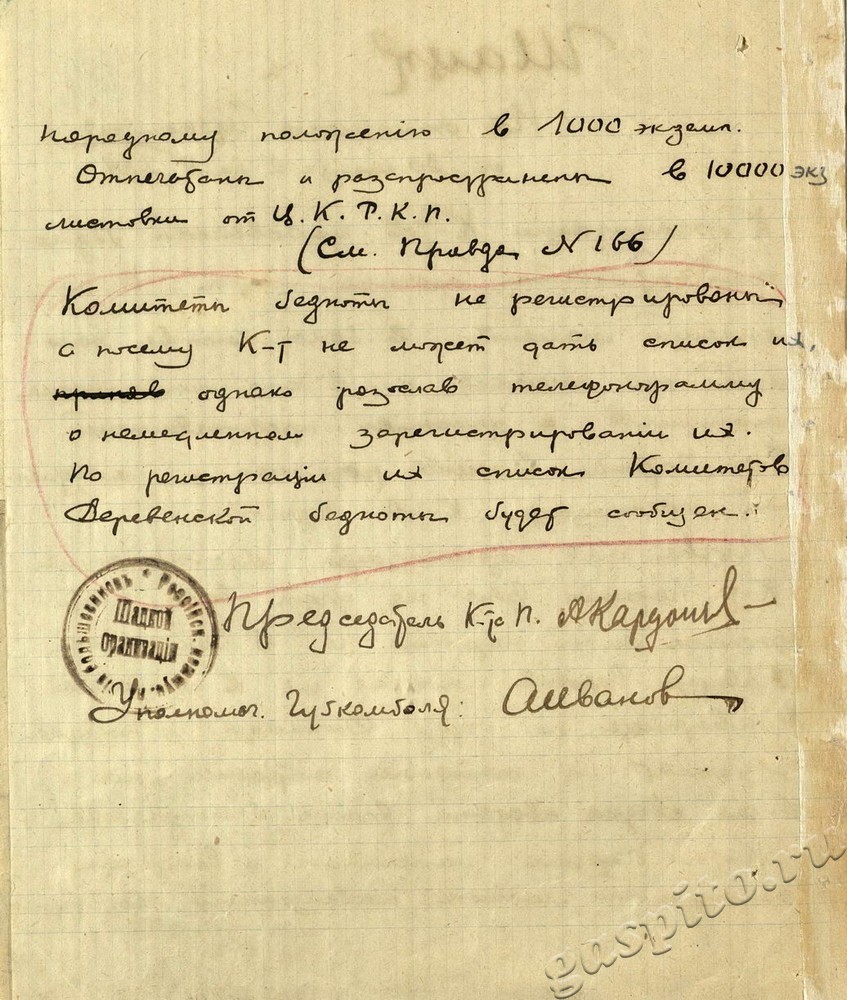 народному положению в 1000 экземп.
Отпечатаны и разспространены в 10000 экз
листовки от Ц.К.Р.К.П.
(См. Правда N 166)
Комитеты бедноты не регистрированы
а посему К-т не может дать список их,
однако разослав телефонограмму
о немедленном зарегистрировании их.
По регистраціи их список Комитетов
Деревенской бедноты будет сообщен.
Шацкой
организаціи
большевиковъ * Россійск.
Председатель К-та П. АКардо
Уполномоч. Губкомболя: АИванов
gaspito.ru